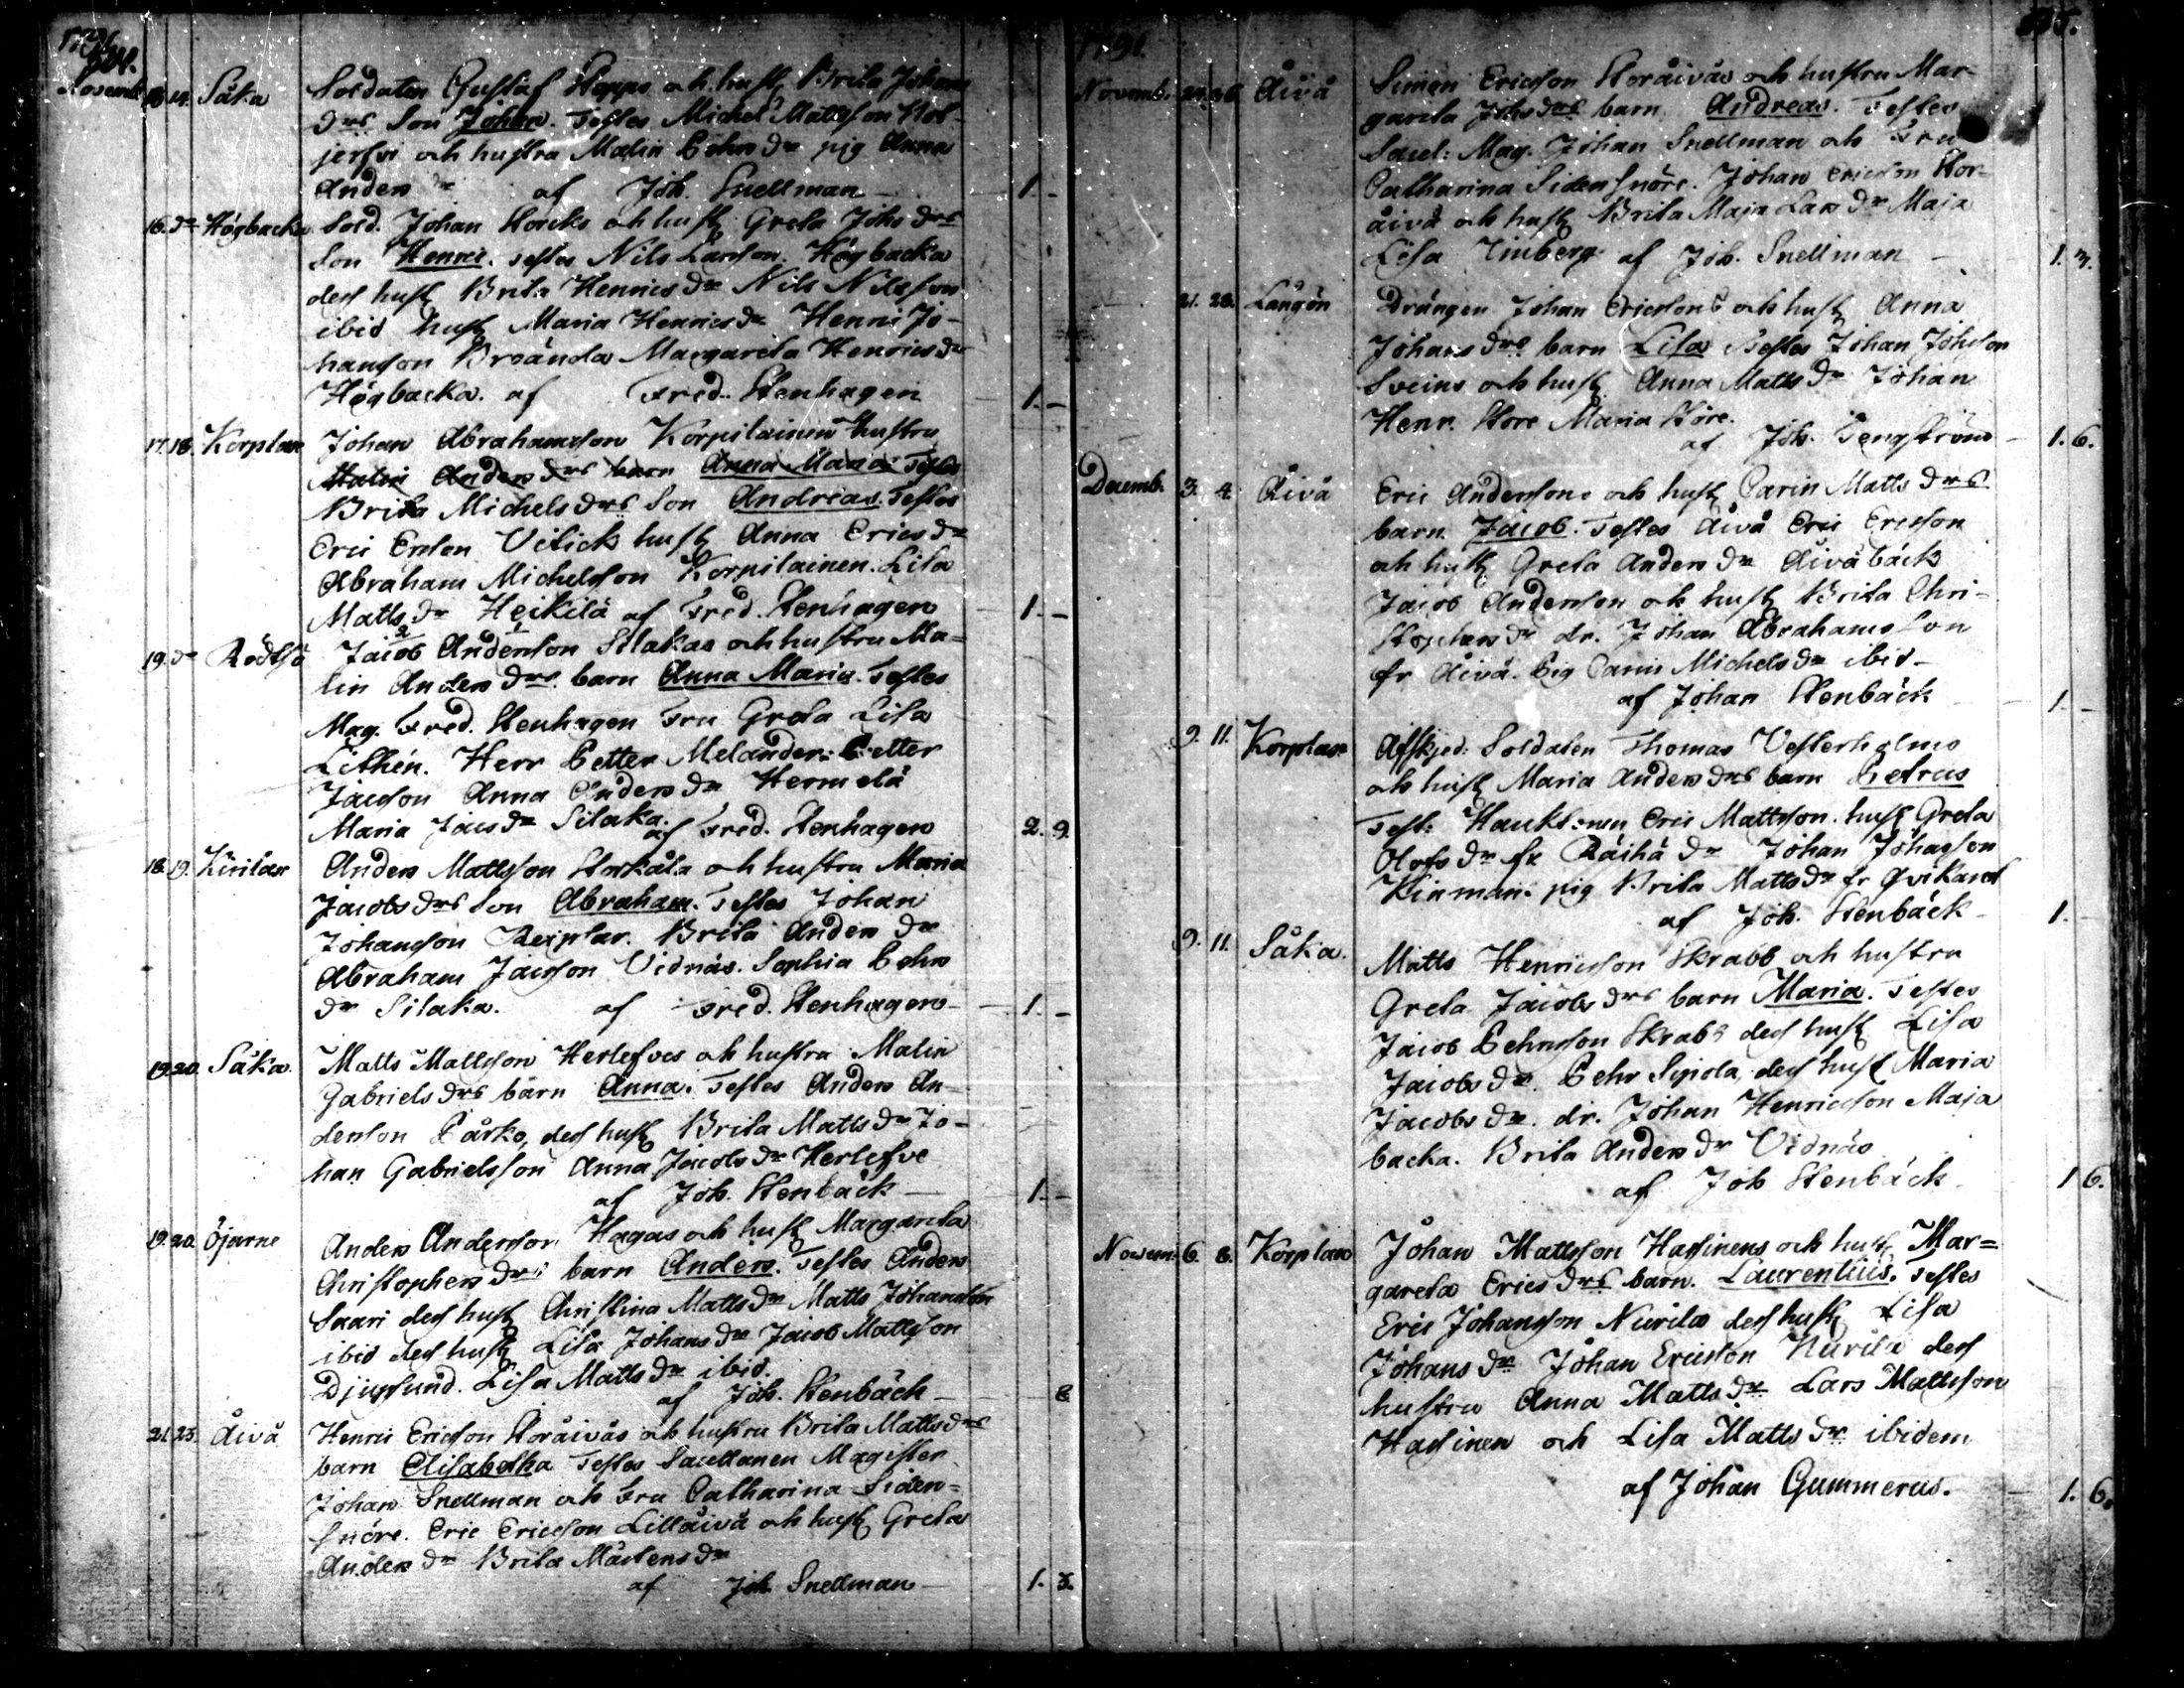 1791.
Novemb. 13. 14. Såka Soldaten Gustaf Hopps och hust. Brita Johans
drs Son Johan. Testes Michel Mattsson
och hustru Malin Pehrs dr pig Anna
Anders dr af Joh. Snellman 1. -
16. dr Högbacka Sold. Johan Storcks och hust. Greta Johs drs
Son Henric. Testes Nils Larsson Högbacka
dess hust. Brita Henrics dr Nils Nilsson
ibid hust. Maria Henrics dr Henric Jo-
hansson Brännda Margareta Henrics dr
Högbacka. af Fred. Stenhagen 1. -
17. 18. Korplax Johan Abrahamsson Korpilainen hustru
Malin Anders drs barn Anna Maria Testes
Brita Michels drs Son Andreas. Testes
Eric Ersson Vitick hust. Anna Erics dr
Abraham Michelsson Korpilainen. Lisa
Matts dr Heikilä af Fred. Stenhagen 1. -
19. dr Rödsö Jacob Andersson Silakas och hustru Ma-
lin Anders drs barn Anna Maria. Testes
Mag. Fred. Stenhagen Fru Greta Lisa
Lithén. Herr Petter Melander. Petter
Jacsson Anna Anders dr Hermelä
Maria Jacs dr Silaka. af Fred. Stenhagen 2. 9
18. 19. Kirilax Anders Mattsson Storkåla och hustru Maria
Jacobs drs Son Abraham. Testes Johan
Johansson Reiplax. Brita Anders dr
Abraham Jacsson Vidnäs. Sophia Pehrs
dr Silaka. af Fred. Stenhagen 1. -
19. 20. Såka. Matts Mattsson Herlefves och hustru Malin
Gabriels drs barn Anna. Testes Anders An-
dersson Pärko, dess hust. Brita Matts dr Jo-
han Gabrielsson Anna Jacobs dr Herlefve
af Joh. Stenbäck 1. -
19. 20. Öjarne Anders Andersson Hagas och hust. Margareta
Christophers drs barn Anders. Testes Anders
Saari dess hust. Christina Matts dr Matts Johansson
ibid dess hust. Lisa Johans dr Jacob Mattsson
Djupsund. Lisa Matts dr ibid.
af Joh. Stenbäck 6
21. 23. Åivå Henric Ericsson Storåivås och hustru Brita Matts drs
barn Elisabetha Testes Sacellanen Magister
Johan Snellman och Fru Catharina Siden-
snöre. Eric Ericsson Lillåivå och hust. Greta
Anders dr Brita Mårtens dr
af Joh. Snellman 1. 3.
1791. 305.
Novemb. 24. 26. Åivå Simon Ericsson Storåivås och hustru Mar-
gareta Johs drs barn Andreas. Testes
Sacel: Mag. Johan Snellman och Fru
Catharina Sidensnöre. Johan Ericsson Stor-
åivå och hust. Brita Maja Lars dr Maja
Lisa Timberg af Joh. Snellman 1. 3.
21. 28. Långön Drängen Johan Ericssons och hust. Anna
Johans drs barn Lisa Testes Johan Johsson
Sveins och hust. Anna Matts dr Johan
Henr. Store Maria Store.
af Joh. Tengström 1. 6.
Decemb. 3. 4. Åivå Eric Anderssons och hust. Carin Matts drs
barn Jacob. Testes Åivå Eric Ericsson
och hust. Greta Anders dr Åivåbäck
Jacob Andersson och hust. Brita Chri-
stophers dr dr. Johan Abrahamsson
fr Åivå. Pig Carin Michels dr ibid
af Johan Stenbäck 1 -
9. 11. Korplax Afskjed: Soldaten Thomas Vesterholms
och hust. Maria Anders drs barn Petrus
Test: Hauktomn Eric Mattsson. hust. Greta
Olofs dr fr Räihä dr Johan Johansson
Kinman. pig Brita Matts dr fr Qvikant
af Joh. Stenbäck 1.
9. 11. Såka. Matts Henricsson Skrabb och hustru
Greta Jacobs drs barn Maria. Testes
Jacob Pehrsson Skrabb dess hust. Lisa
Jacobs dr. Pehr Sipola, dess hust. Maria
Jacobs dr. dr. Johan Henricsson Maja
backa. Brita Anders dr Vidnäs
af Joh Stenbäck 1 6.
Novem. 6. 8. Korplax Johan Mattsson Hassinens och hust. Mar-
gareta Erics drs barn. Laurentius. Testes
Eric Johansson Nurila dess hust. Lisa
Johans dr Johan Ericsson Nurila dess
hustru Anna Matts dr Lars Mattsson
Hassinen och Lisa Matts dr ibidem
af Johan Gummerus. 1. 6.